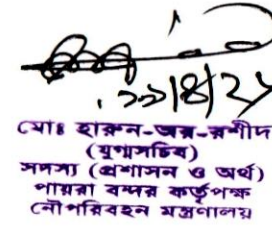 মোঃ হারুন-অর-রশীদ
(যুগ্মসচিব)
সদস্য (প্রশাসন ও অর্থ)
পায়রা বন্দর কর্তৃপক্ষ
নৌপরিবহন মন্ত্রণালয়